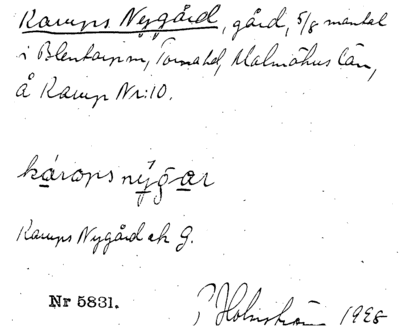 Karups Nygård, gård, 5/8 mantal
i Blentarp sn, Torna hd, Malmöhus län,
å Karup Nr: 10.
károps nȳgar
Karups Nygård ek G.
Nr 5831.
Holmström 1928